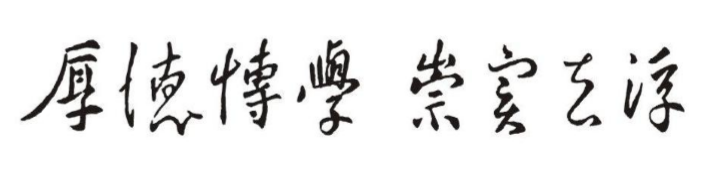 厚德博學 崇實去浮